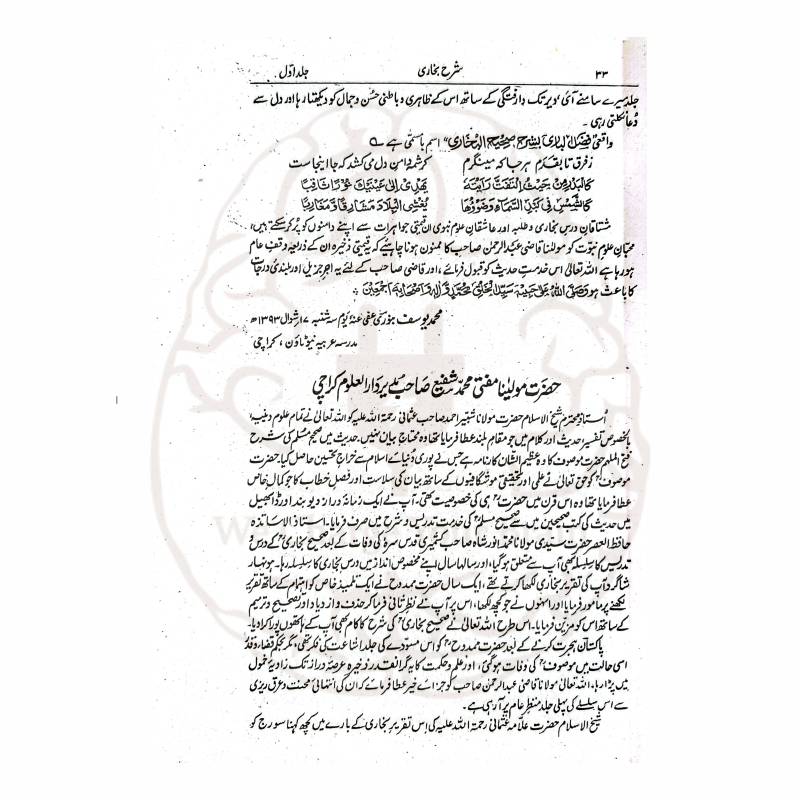 ۳۳ شرح بخاری جلد اوّل
جلد میرے سامنے آئی، دیر تک وارفتگی کے ساتھ اس کے ظاہری و باطنی حسن و جمال کو دیکھتا رہا اور دل سے
دُعا نکلتی رہی۔
واقعی فضل الباری بشرح صحیح البخاری، اسم بامسمّٰی ہے ؎
زفرق تا بقدم ہر جا کہ مینگرم کرشمہ دامن دل می کشد کہ جا اینجاست
کالبدر من حیث التفت رأیتہ یھدی الی عینیک نورا ثاقبا
کالشمس فی کبد السماء وضوؤھا یغشی البلاد مشارقا و مغاربا
مشتاقانِ درسِ بخاری و طلبہ اور عاشقانِ علومِ نبوی ان قیمتی جواہرات سے اپنے دامنوں کو پُر کر سکتے ہیں،
محبّانِ علومِ نبوّت کو مولٰنا قاضی عبدالرحمن صاحب کا ممنون ہونا چاہئیے کہ یہ قیمتی ذخیرہ ان کے ذریعہ وقفِ عام
ہو رہا ہے اللہ تعالیٰ اس خدمتِ حدیث کو قبول فرمائے، اور قاضی صاحب کے لئے یہ اجرِ جزیل اور بلندیِ درجات
کا باعث ہو وصلی اللہ علی سید الخلق محمد و آلہ و اصحابہ اجمعین
محمد یوسف بنوری عفی عنہ یوم سہ شنبہ ۱۷ شوال ۱۳۹۳ھ
مدرسہ عربیہ نیو ٹاؤن، کراچی
حضرت مولینا مفتی محمد شفیع صاحب دار العلوم کراچی
اُستاذِ محترم شیخ الاسلام حضرت مولانا شبیر احمد صاحب عثمانی رحمۃ اللہ علیہ کو اللہ تعالیٰ نے تمام علوم دینیہ،
بالخصوص تفسیر، حدیث اور کلام میں جو مقامِ بلند عطا فرمایا تھا وہ محتاجِ بیان نہیں۔ حدیث میں صحیح مسلم کی شرح
فتح الملہم حضرت موصوف کا وہ عظیم الشان کارنامہ ہے جس نے پوری دُنیائے اسلام سے خراجِ تحسین حاصل کیا۔ حضرت
موصوفؒ کو حق تعالیٰ نے علمی اور تحقیقی موشگافیوں کے ساتھ بیان کی سلاست اور فصلِ خطاب کا جو کمالِ خاص
عطا فرمایا تھا وہ اس قرن میں حضرتؒ ہی کی خصوصیت تھی۔ آپ نے ایک زمانۂ دراز دیوبند اور ڈابھیل
میں حدیث کی کتب صحیحین میں سے صحیح مسلمؒ کی خدمتِ تدریس و شرح میں صرف فرمایا۔ استاذ الاساتذہ
حافظ العصر حضرت سیّدی مولانا محمد انور شاہ صاحب کشمیری قدس سرہٗ کی وفات کے بعد صحیح بخاریؒ کے درس و
تدریس کا سلسلہ بھی آپ سے متعلق ہوگیا، اور سالہا سال اپنے مخصوص انداز میں درسِ بخاری کا سلسلہ رہا۔ ہونہار
شاگرد آپ کی تقریرِ بخاری لکھا کرتے تھے، ایک سال حضرت ممدوح نے ایک تلمیذِ خاص کو اہتمام کے ساتھ تقریر
لکھنے پر مامور فرمایا اور انہوں نے جو کچھ لکھا، اس پر آپ نے نظرِ ثانی فرماکر حذف و ازدیاد اور تصحیح و ترمیم
کے ساتھ اس کو مزیّن فرمایا۔ اس طرح اللہ تعالیٰ نے صحیح بخاریؒ کی شرح کا کام بھی آپ کے ہاتھوں پورا کرا دیا۔
پاکستان ہجرت کرنے کے بعد حضرت ممدوحؒ کو اس مسودے کی جلد اشاعت کی فکر تھی، مگر بحکم قضا و قدر
اسی حالت میں موصوفؒ کی وفات ہوگئی، اور علم و حکمت کا یہ گرانقدر ذخیرہ عرصۂ دراز تک زاویۂ خمول
میں پڑا رہا۔ اللہ تعالیٰ مولانا قاضی عبدالرحمن صاحب کو جزائے خیر عطا فرمائے کہ ان کی انتہائی محنت و عرق ریزی
سے اس سلسلے کی پہلی جلد منظرِ عام پر آ رہی ہے۔
شیخ الاسلام حضرت علامہ عثمانی رحمۃ اللہ علیہ کی اس تقریرِ بخاری کے بارے میں کچھ کہنا سورج کو